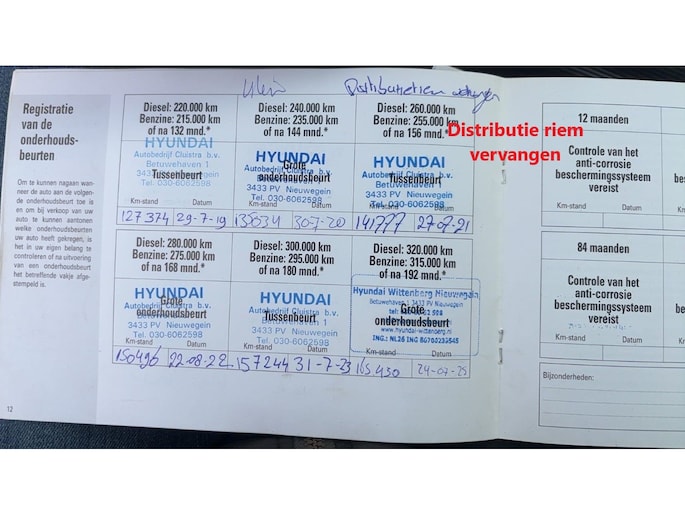 Klein
Distributieriem vervangen
Registratie
van de
onderhouds-
beurten
Om te kunnen nagaan wan-
neer de auto aan de volgen-
de onderhoudsbeurt toe is
en om bij verkoop van uw
auto te kunnen aantonen
welke onderhoudsbeurten
uw auto heeft gekregen, is
het in uw eigen belang te
controleren of na uitvoering
van een onderhoudsbeurt
het betreffende vakje afge-
stempeld is.
12
Diesel: 220.000 km
Benzine: 215.000 km
of na 132 mnd.*
HYUNDAI
Autobedrijf Cluistra b.v.
Betuwehaven 1
Tussenbeurt
3433 PV Nieuwegein
Tel. 030-6062598
Km-stand Datum
127374 29-7-19
Diesel: 240.000 km
Benzine: 235.000 km
of na 144 mnd.*
HYUNDAI
Autobedrijf Cluistra b.v.
Grote
onderhoudsbeurt
3433 PV Nieuwegein
Tel. 030-6062598
Km-stand Datum
30-7-20
Diesel: 260.000 km
Benzine: 255.000 km
of na 156 mnd.*
HYUNDAI
Autobedrijf Cluistra b.v.
Betuwehaven 1
Tussenbeurt
3433 PV Nieuwegein
Tel. 030-6062598
Km-stand Datum
141777 27-07-21
Distributie riem
vervangen
Diesel: 280.000 km
Benzine: 275.000 km
of na 168 mnd.*
HYUNDAI
Autobedrijf Cluistra b.v.
Grote
onderhoudsbeurt
3433 PV Nieuwegein
Tel. 030-6062598
Km-stand Datum
150496 22-08-22
Diesel: 300.000 km
Benzine: 295.000 km
of na 180 mnd.*
HYUNDAI
Autobedrijf Cluistra b.v.
Betuwehaven 1
Tussenbeurt
3433 PV Nieuwegein
Tel. 030-6062598
Km-stand Datum
157244 31-7-23
Diesel: 320.000 km
Benzine: 315.000 km
of na 192 mnd.*
Hyundai Wittenberg Nieuwegein
Betuwehaven 1 3433 PV Nieuwegein
Grote
onderhoudsbeurt
www.hyundai-wittenberg.nl
Km-stand Datum
165430
12 maanden
Controle van het
anti-corrosie
beschermingssysteem
vereist
Km-stand Datum
84 maanden
Controle van het
anti-corrosie
beschermingssysteem
vereist
Km-stand Datum
Bijzonderheden: